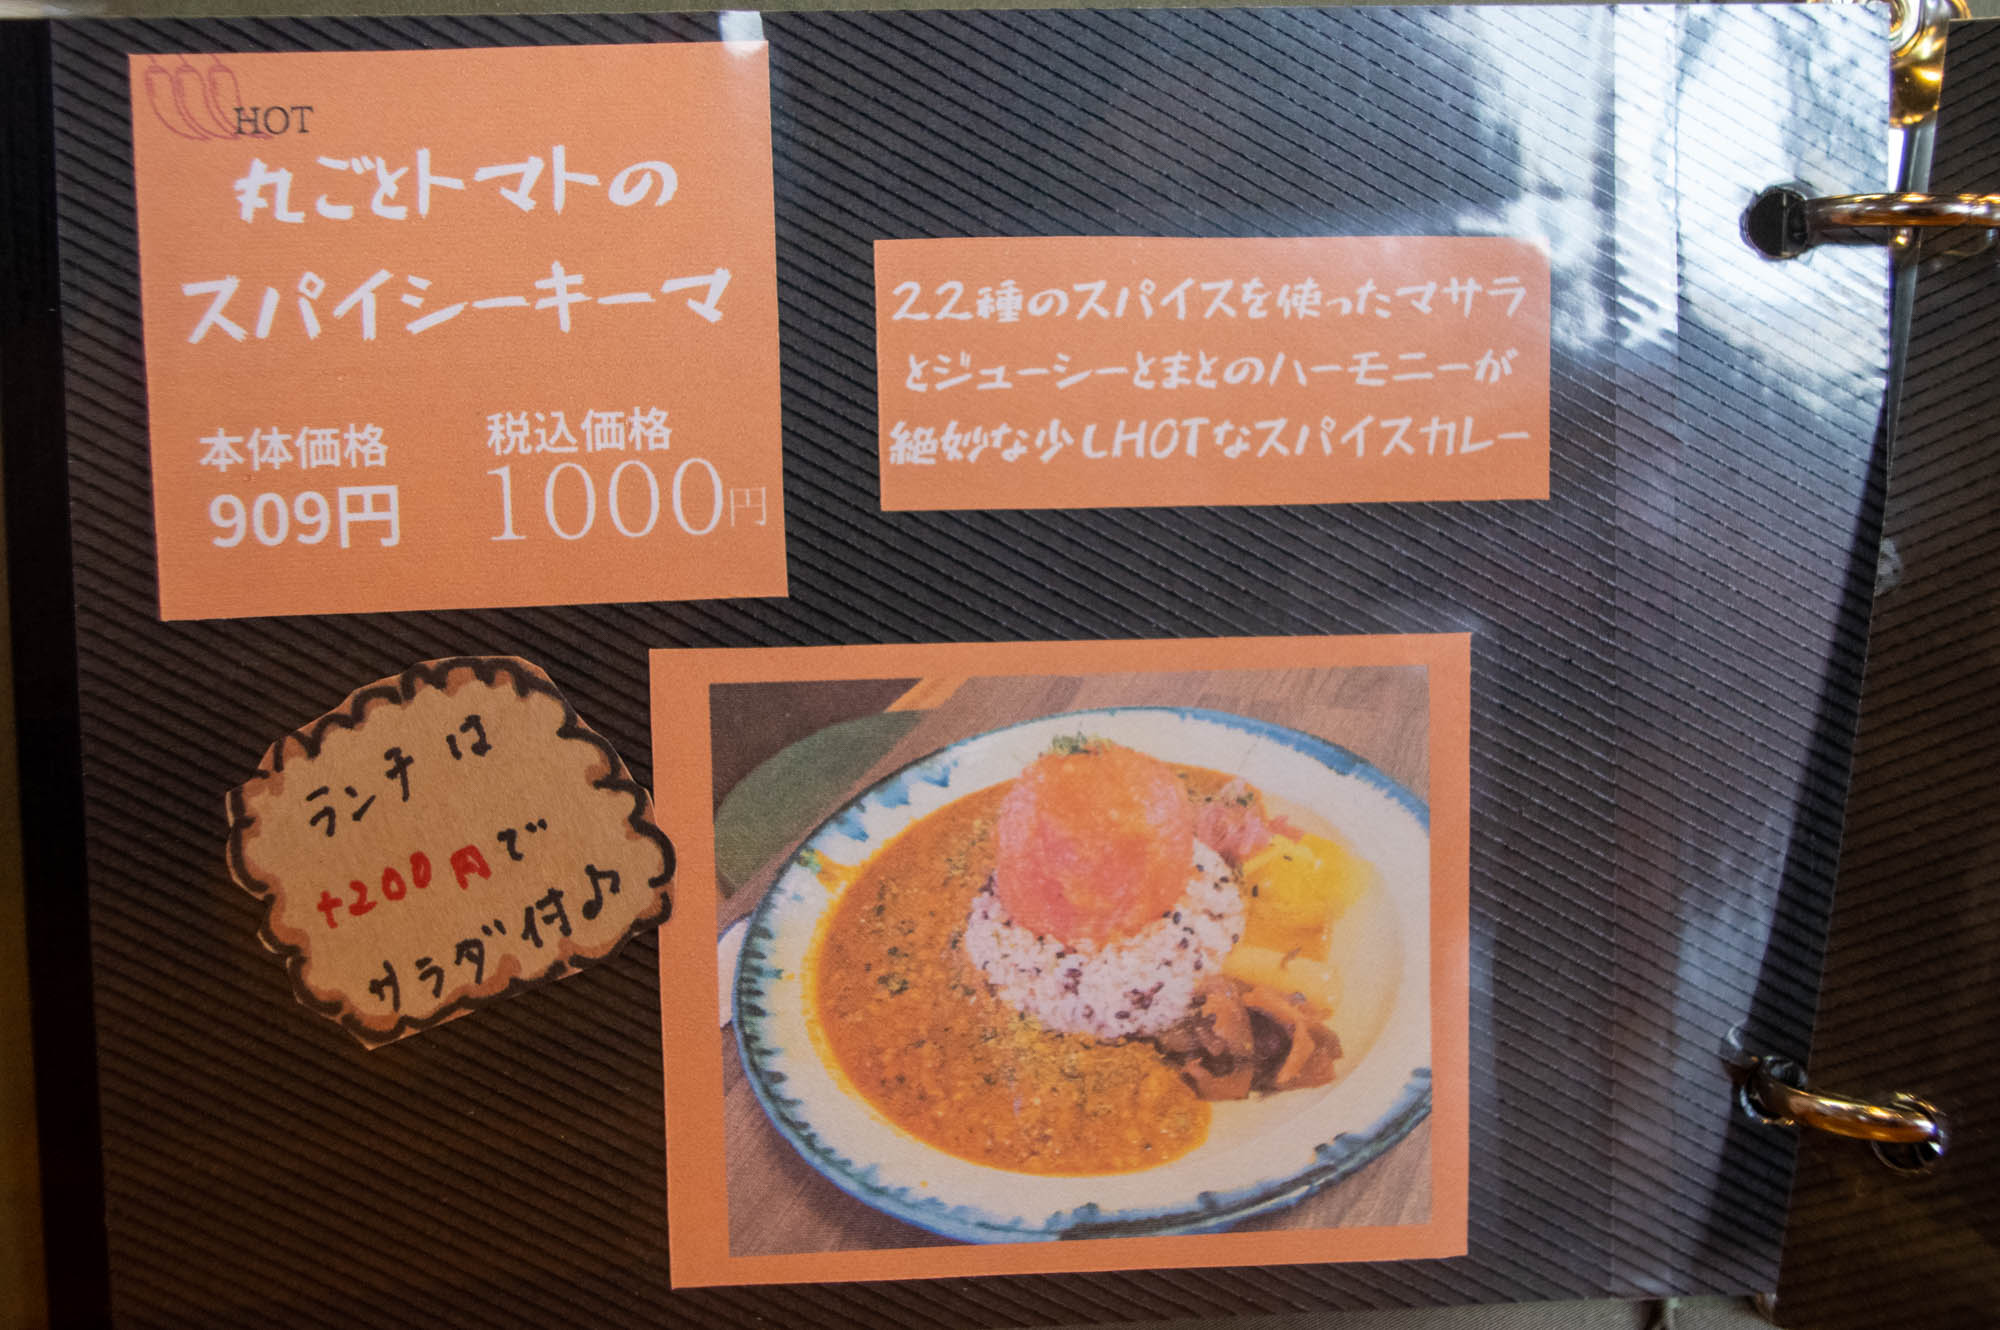 HOT
丸ごとトマトの
スパイシーキーマ
本体価格
909円
税込価格
1000円
22種のスパイスを使ったマサラ
とジューシーとまとのハーモニーが
絶妙な少しHOTなスパイスカレー
ランチは
+200円で
サラダ付♪